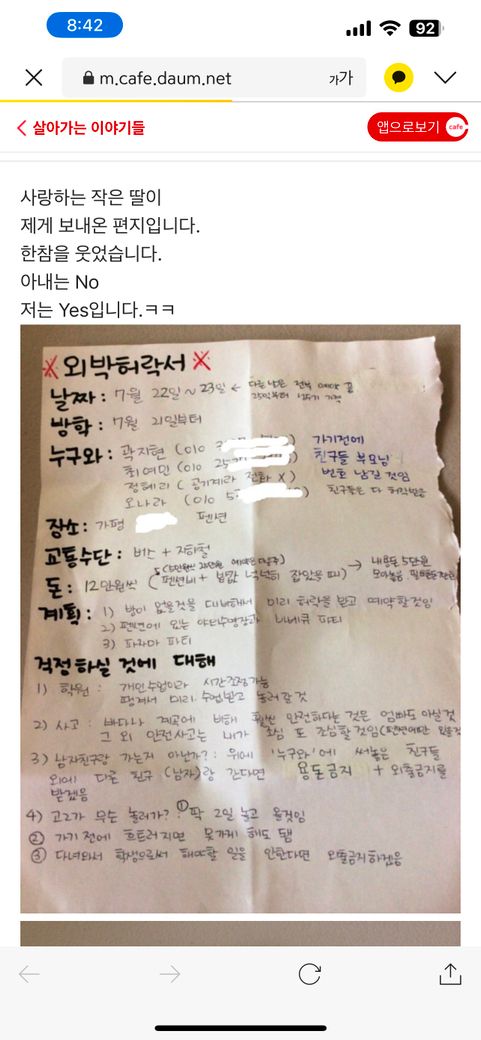 8:42
92
m.cafe.daum.net
가가
살아가는 이야기들
앱으로보기 cafe
사랑하는 작은 딸이
제게 보내온 편지입니다.
한참을 웃었습니다.
아내는 No
저는 Yes입니다.ㅋㅋ
외박허락서
날짜 : 7월 22일 ~ 23일 ← 다른 날은 전부 예약 꽉
25일부터 성수기 가격
방학 : 7월 21일부터
누구와 : 곽지현 (010
최여민 (010
정혜리 (공기계라 전화 X)
오나라 (010
가기전에
친구들 부모님
번호 남길 것임
친구들은 다 허락받음
장소 : 가평 펜션
교통수단 : 버스 + 지하철
돈 : 12만원씩 (펜션비 + 밥값 넉넉히 잡았을 때) → 내용돈 5만원
계획 : 1) 방이 없을것을 대비해서 미리 허락을 받고 예약할것임
2) 펜션에 있는 야외수영장과 바베큐 파티
3) 파자마 파티
걱정하실 것에 대해
1) 학원 : 개인수업이라 시간조정가능
땡겨서 미리 수업받고 놀러갈것
2) 사고 : 바다나 계곡에 비해 훨씬 안전하다는 것은 엄빠도 아실것
그 외 안전사고는 내가 조심 또 조심할것임
3) 남자친구랑 가는지 아닌가? : 위에 '누구와'에 써놓은 친구들
외에 다른 친구 (남자)랑 간다면 용돈금지 + 외출금지를
받겠음
4) 고2가 무슨 놀러가? ① 딱 2일 놀고 올것임
② 가기 전에 흐트러지면 못가게 해도 됨
③ 다녀와서 학생으로써 해야할 일을 안한다면 외출금지하겠음